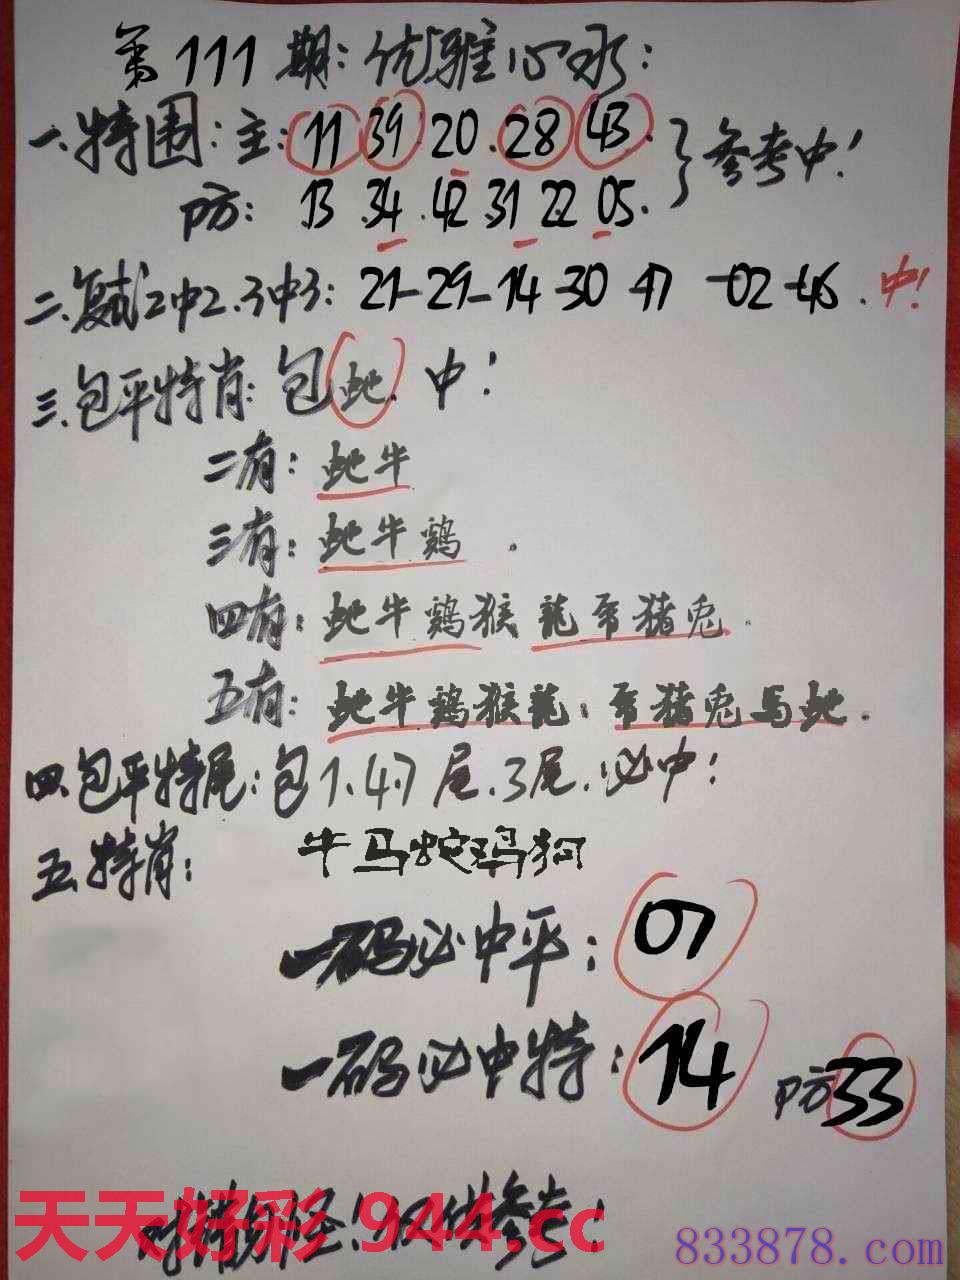 第111期:优雅心水:
一.特围:主:11 39 20.28 43.
防: 13.34.42.31 22 05.
参考中!
二.复试2中2.3中3: 21-29-14-30 47-02-46.中!
三.包平特肖:包蛇.中!
二有:蛇牛
三有:蛇牛鷄.
四有:蛇牛鷄猴龍 猪兎.
五有:蛇牛鷄猴龍: 猪兎馬蛇.
四.包平特尾:包1.4.7尾.3尾.必中!
五特肖: 牛马蛇鸡狗
一码必中平: 07
一码必中特: 14 防33
猜 怪!仅供参考!
天天好彩 944.cc
833878.com